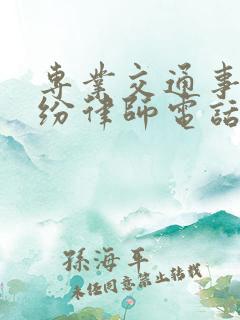 專業交通事
紛律師電話
孫海平
未经同意禁止转载